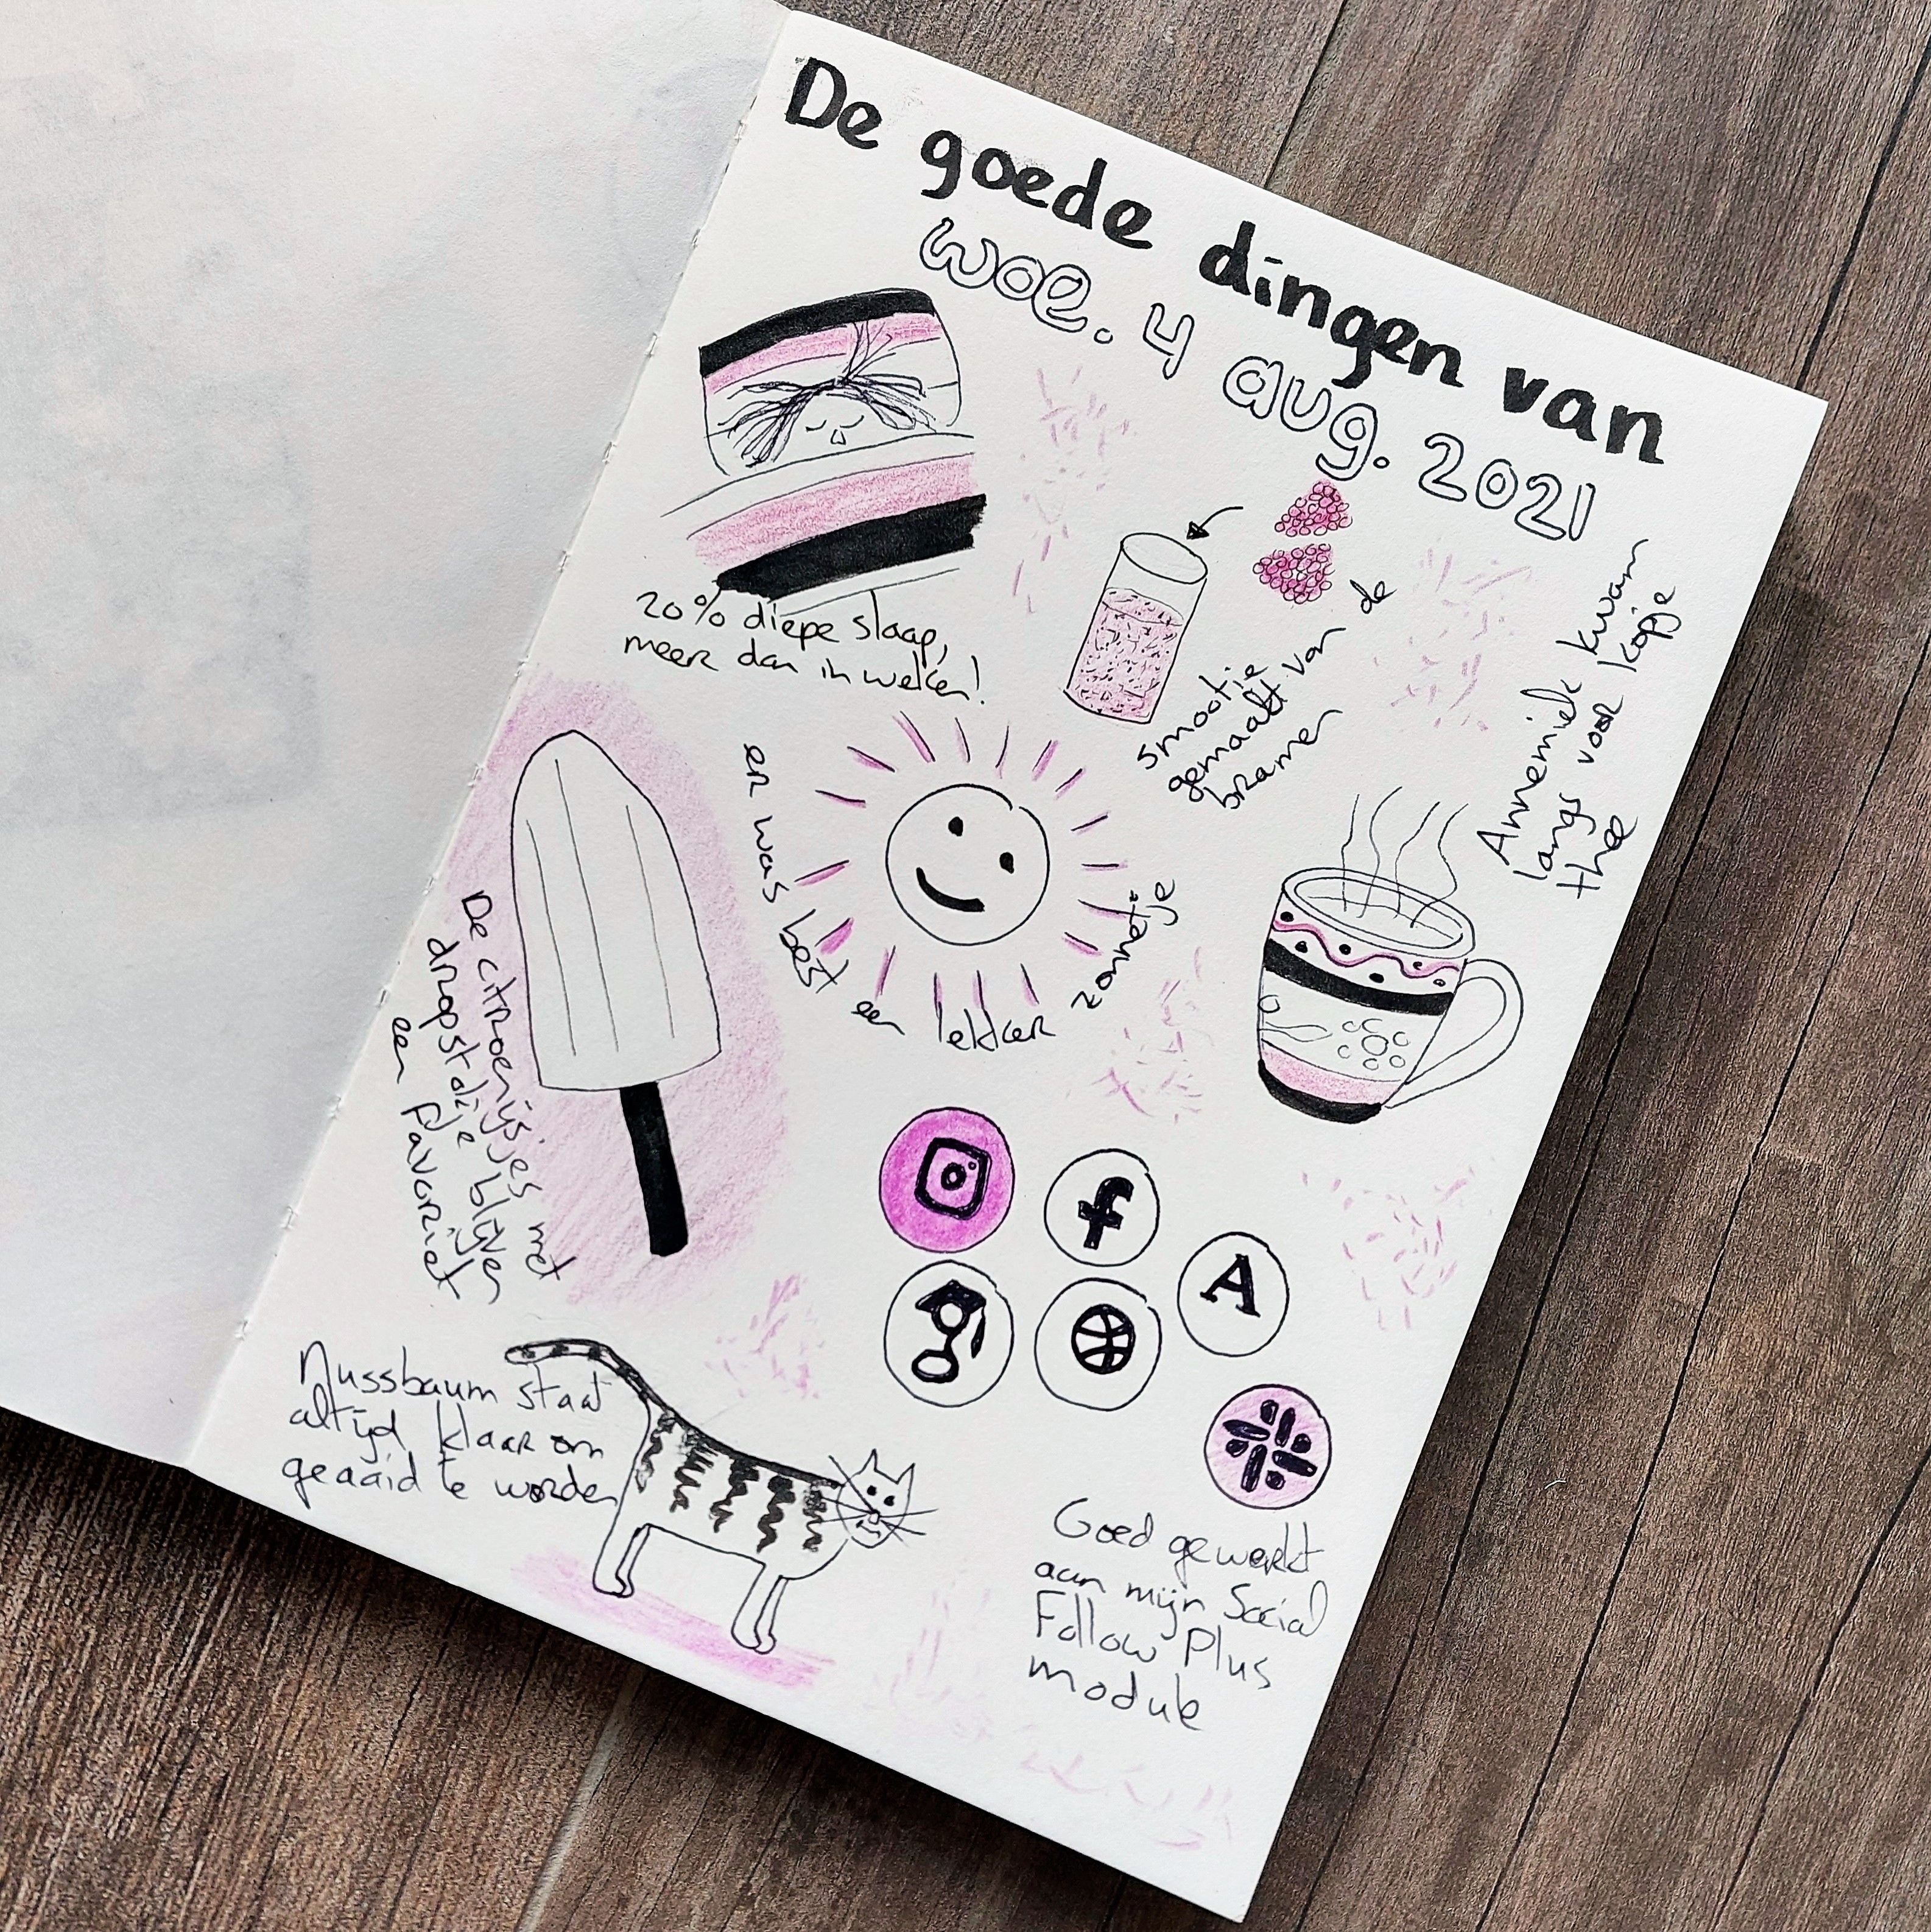 De goede dingen van
woe. 4 aug. 2021
20% diepe slaap,
meer dan in weken!
smootie
gemaakt van de
bramen
Annemiek kwam
langs voor kopje
thee
er was best een lekker zonnetje
De citroenijsjes met
dropstokje blijven
een favoriet
f
A
Nussbaum staat
altijd klaar om
geaaid te worden
Goed gewerkt
aan mijn Social
Follow Plus
module